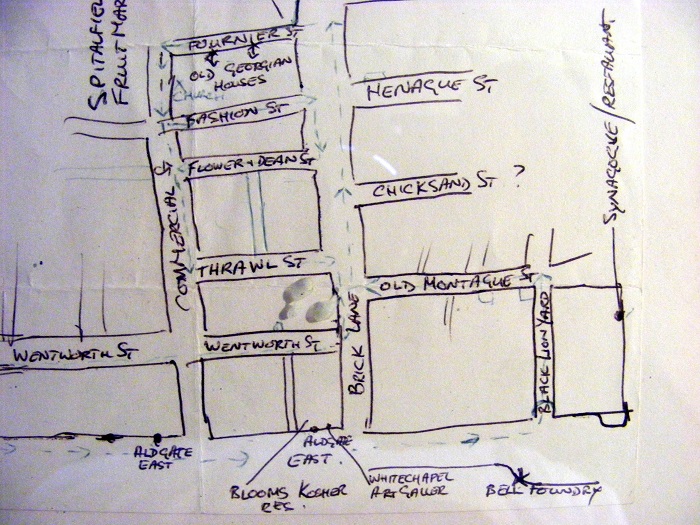 SPITALFIEL
FRUIT MAR
FOURNIER ST
OLD GEORGIAN
HOUSES
CHURCH
FASHION ST
HENAGUE ST
FLOWER + DEAN ST
CHICKSAND ST ?
SYNAGOGUE/RESTAURANT
COMMERCIAL ST
THRAWL ST
OLD MONTAGUE ST
BRICK LANE
BLACK LION YARD
WENTWORTH ST
WENTWORTH ST
ALDGATE
EAST
ALDGATE
EAST.
BLOOMS KOSHER
RES.
WHITECHAPEL
ART GALLER
BELL FOUNDRY